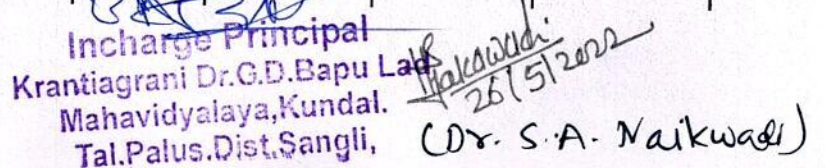 Incharge Principal
Krantiagrani Dr.G.D.Bapu Lad
Mahavidyalaya,Kundal.
Tal.Palus.Dist.Sangli,
26/5/2022
(Dr. S.A. Naikwadi)